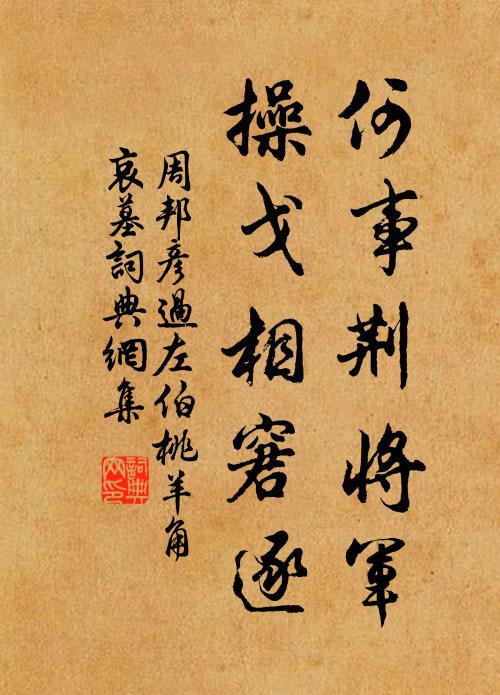 何事荆將軍
操戈相窘逐
周邦彥過左伯桃羊角
哀墓詞典網集
詞典
网印